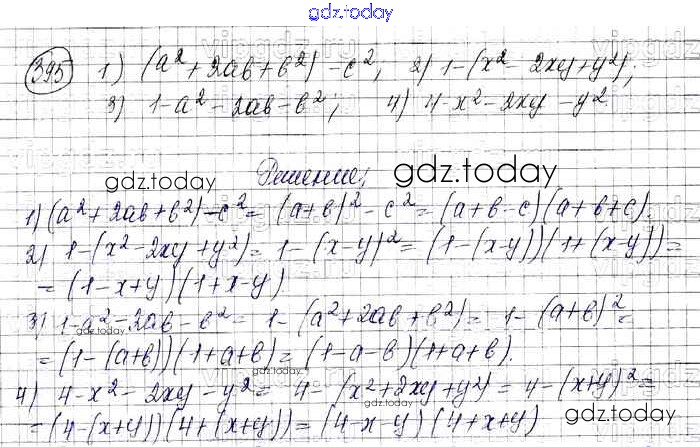 gdz.today
395 1) (a² + 2ab + b²) - c²; 2) 1-(x² - 2xy + y²);
3) 1-a² - 2ab - b²; 4) 4-x² - 2xy - y².
gdz.today
Решение:
gdz.today
1) (a² + 2ab + b²) - c² = (a+b)² - c² = (a+b-c)(a+b+c).
2) 1-(x² - 2xy + y²) = 1-(x-y)² = (1-(x-y))(1+(x-y)) =
= (1-x+y)(1+x-y)
3) 1-a² - 2ab - b² = 1-(a² + 2ab + b²) = 1-(a+b)² =
= (1-(a+b))(1+a+b) = (1-a-b)(1+a+b).
gdz.today
4) 4-x² - 2xy - y² = 4-(x² + 2xy + y²) = 4-(x+y)² =
= (4-(x+y))(4+(x+y)) = (4-x-y)(4+x+y)
gdz.today
gdz.today